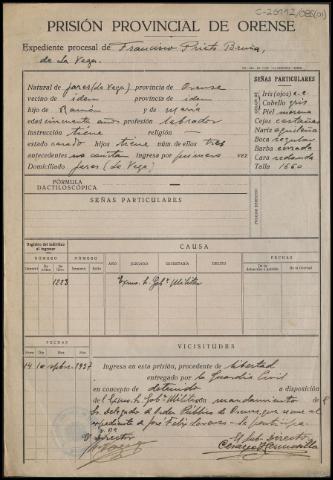 C-26992/086(01)
PRISIÓN PROVINCIAL DE ORENSE
Expediente procesal de Francisco Prieto
de La Vega.
Natural de Jares (La Vega) provincia de Orense
vecino de idem provincia de idem
hijo de Ramón y de María
edad cincuenta años profesión labrador
instrucción tiene religión —
estado casado hijos tiene núm. de ellos tres
antecedentes no constan ingresa por primera vez
Domiciliado Jares (La Vega)
SEÑAS PARTICULARES
Iris (ojos)
Cabello gris
Piel morena
Cejas castañas
Nariz aguileña
Boca regular
Barba cerrada
Cara redonda
Talla 1660
FÓRMULA
DACTILOSCÓPICA
SEÑAS PARTICULARES
Registro del individuo
al ingresar
NÚMERO
CAUSA
AÑO
JUZGADO
SECRETARÍA
DELITO
PENADO
FECHA
1223
Excmo. Sr. Gobr. Militar
FECHA
DÍA
MES
AÑO
VICISITUDES
14 1937
Ingresa en esta prisión, procedente de libertad
entregado por la Guardia Civil
en concepto de detenido a disposición
del Excmo. Sr. Gobr. Militar mandamiento de
Sr. delegado de Orden Público de Orense, que se une al
expediente de José Felix Lorenzo
Vº Bº
El Director
El Director